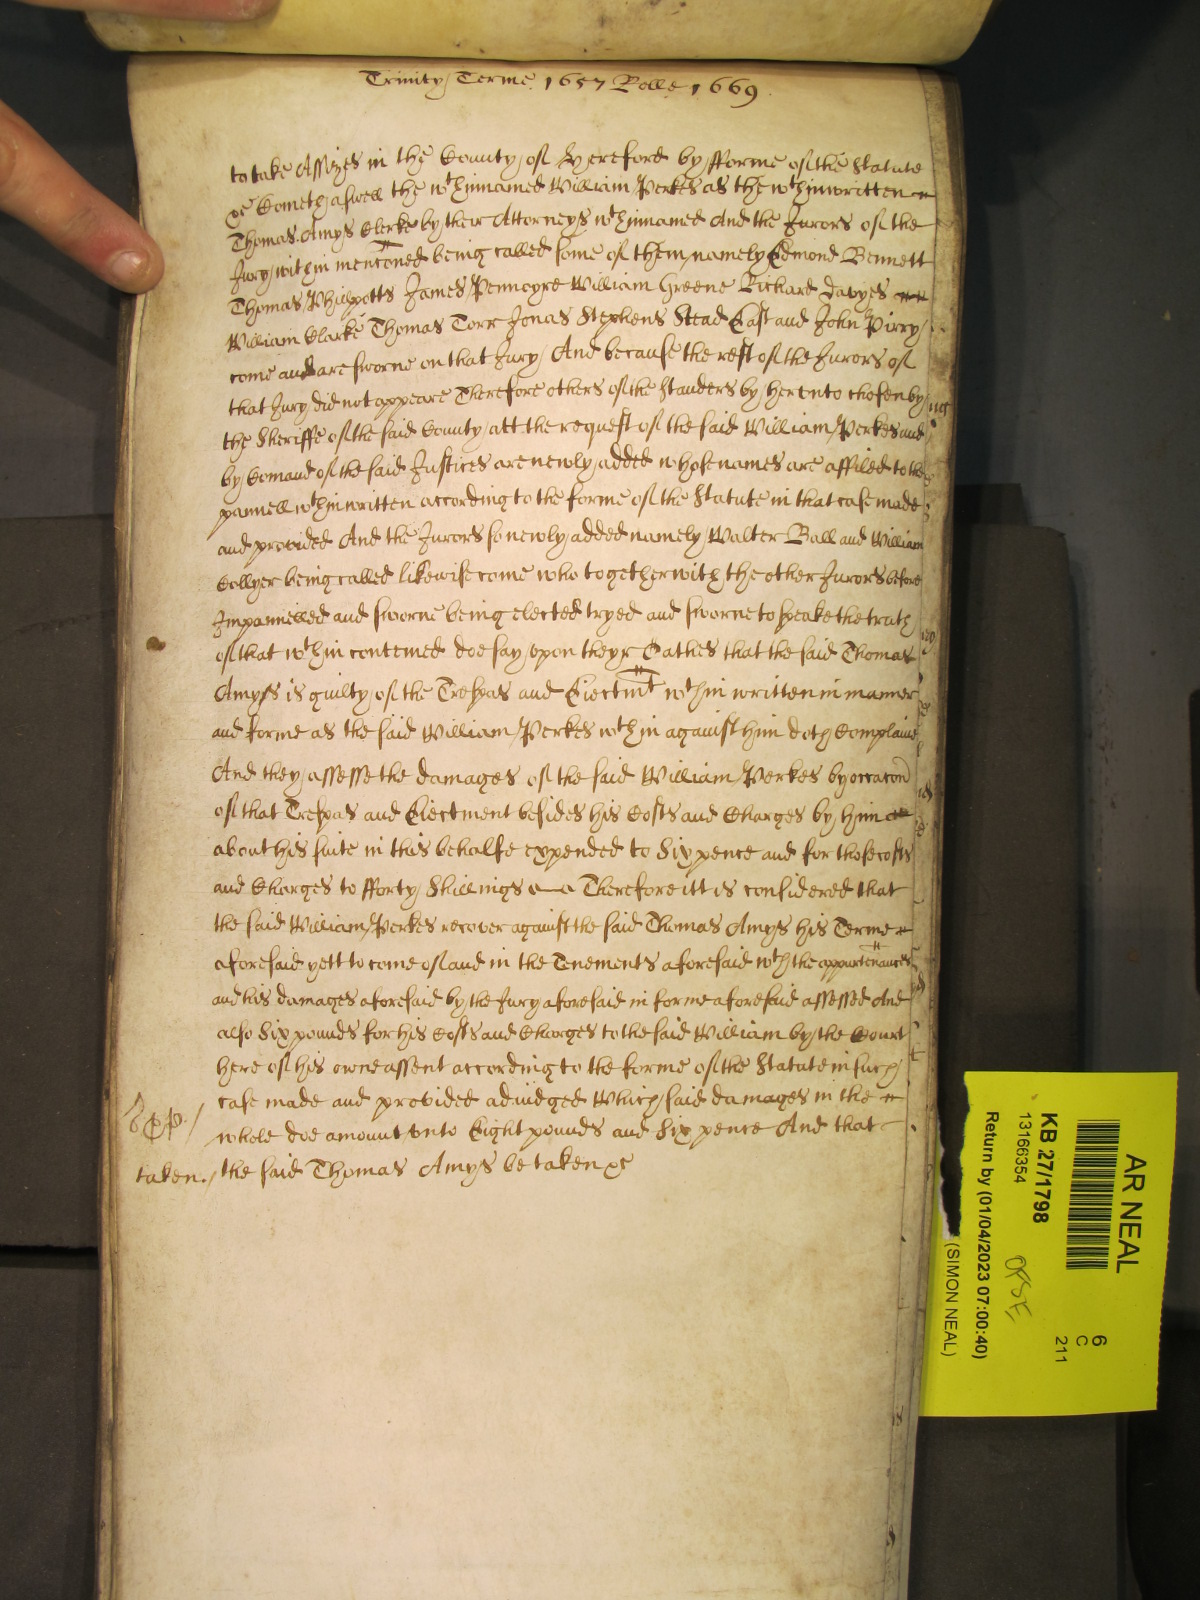 Trinity Terme 1657 Rolle 1669
to take Assizes in the County of Hereford by fforme of the Statute
&c Cometh aswell the wthinnamed William Perkes as the wthinwritten
Thomas Amys Clerke by their Attorneys wthinnamed And the Jurors of the
Jury within mencõned being called some of them namely Edmond Bennett
Thomas Philpotts James Pennoyre William Greene Richard Davyes
William Clarke Thomas Torr Jonas Stephens Stead Cast and John Pirry
come and are sworne on that Jury And because the rest of the Jurors of
that Jury did not appeare Therefore others of the Standers by hereunto chosen by
the Sheriffe of the said County att the request of the said William Perkes and
by Comand of the said Justices are newly added whose names are affiled to the
pannell wthinwritten according to the forme of the Statute in that case made
and provided And the Jurors so newly added namely Walter Ball and William
Collyer being called likewise come who together with the other Jurors before
Impannelled and sworne being elected tryed and sworne to speake the truth
of that wthin conteined doe say upon theyr Oathes that the said Thomas
Amyss is guilty of the Trespas and Eiectmt wthin written in manner
and forme as the said William Perkes wthin against him doth Complaine
And they assesse the damages of the said William Perkes by occacon
of that Trespas and Eiectment besides his Costs and Charges by him
about his suite in this behalfe expended to Six pence and for those costs
and Charges to fforty Shillings Therefore itt is considered that
the said William Perkes recover against the said Thomas Amys his Terme
aforesaid yett to come of and in the Tenements aforesaid wth the appurtenances
and his damages aforesaid by the Jury aforesaid in forme aforesaid assessed And
also Six pounds for his Costs and Charges to the said William by the Court
here of his owne assent according to the forme of the Statute in such
case made and provided adiudged Which said damages in the
whole doe amount unto Eight pounds and Six pence And that
taken. the said Thomas Amys be taken &c
AR NEAL
6
C
211
KB 27/1798
13166354
Return by (01/04/2023 07:00:40)
(SIMON NEAL)